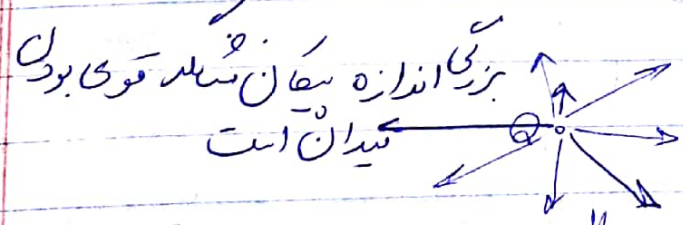 بزرگی اندازه پیکان نشانگر قوی بودن
میدان است
Q